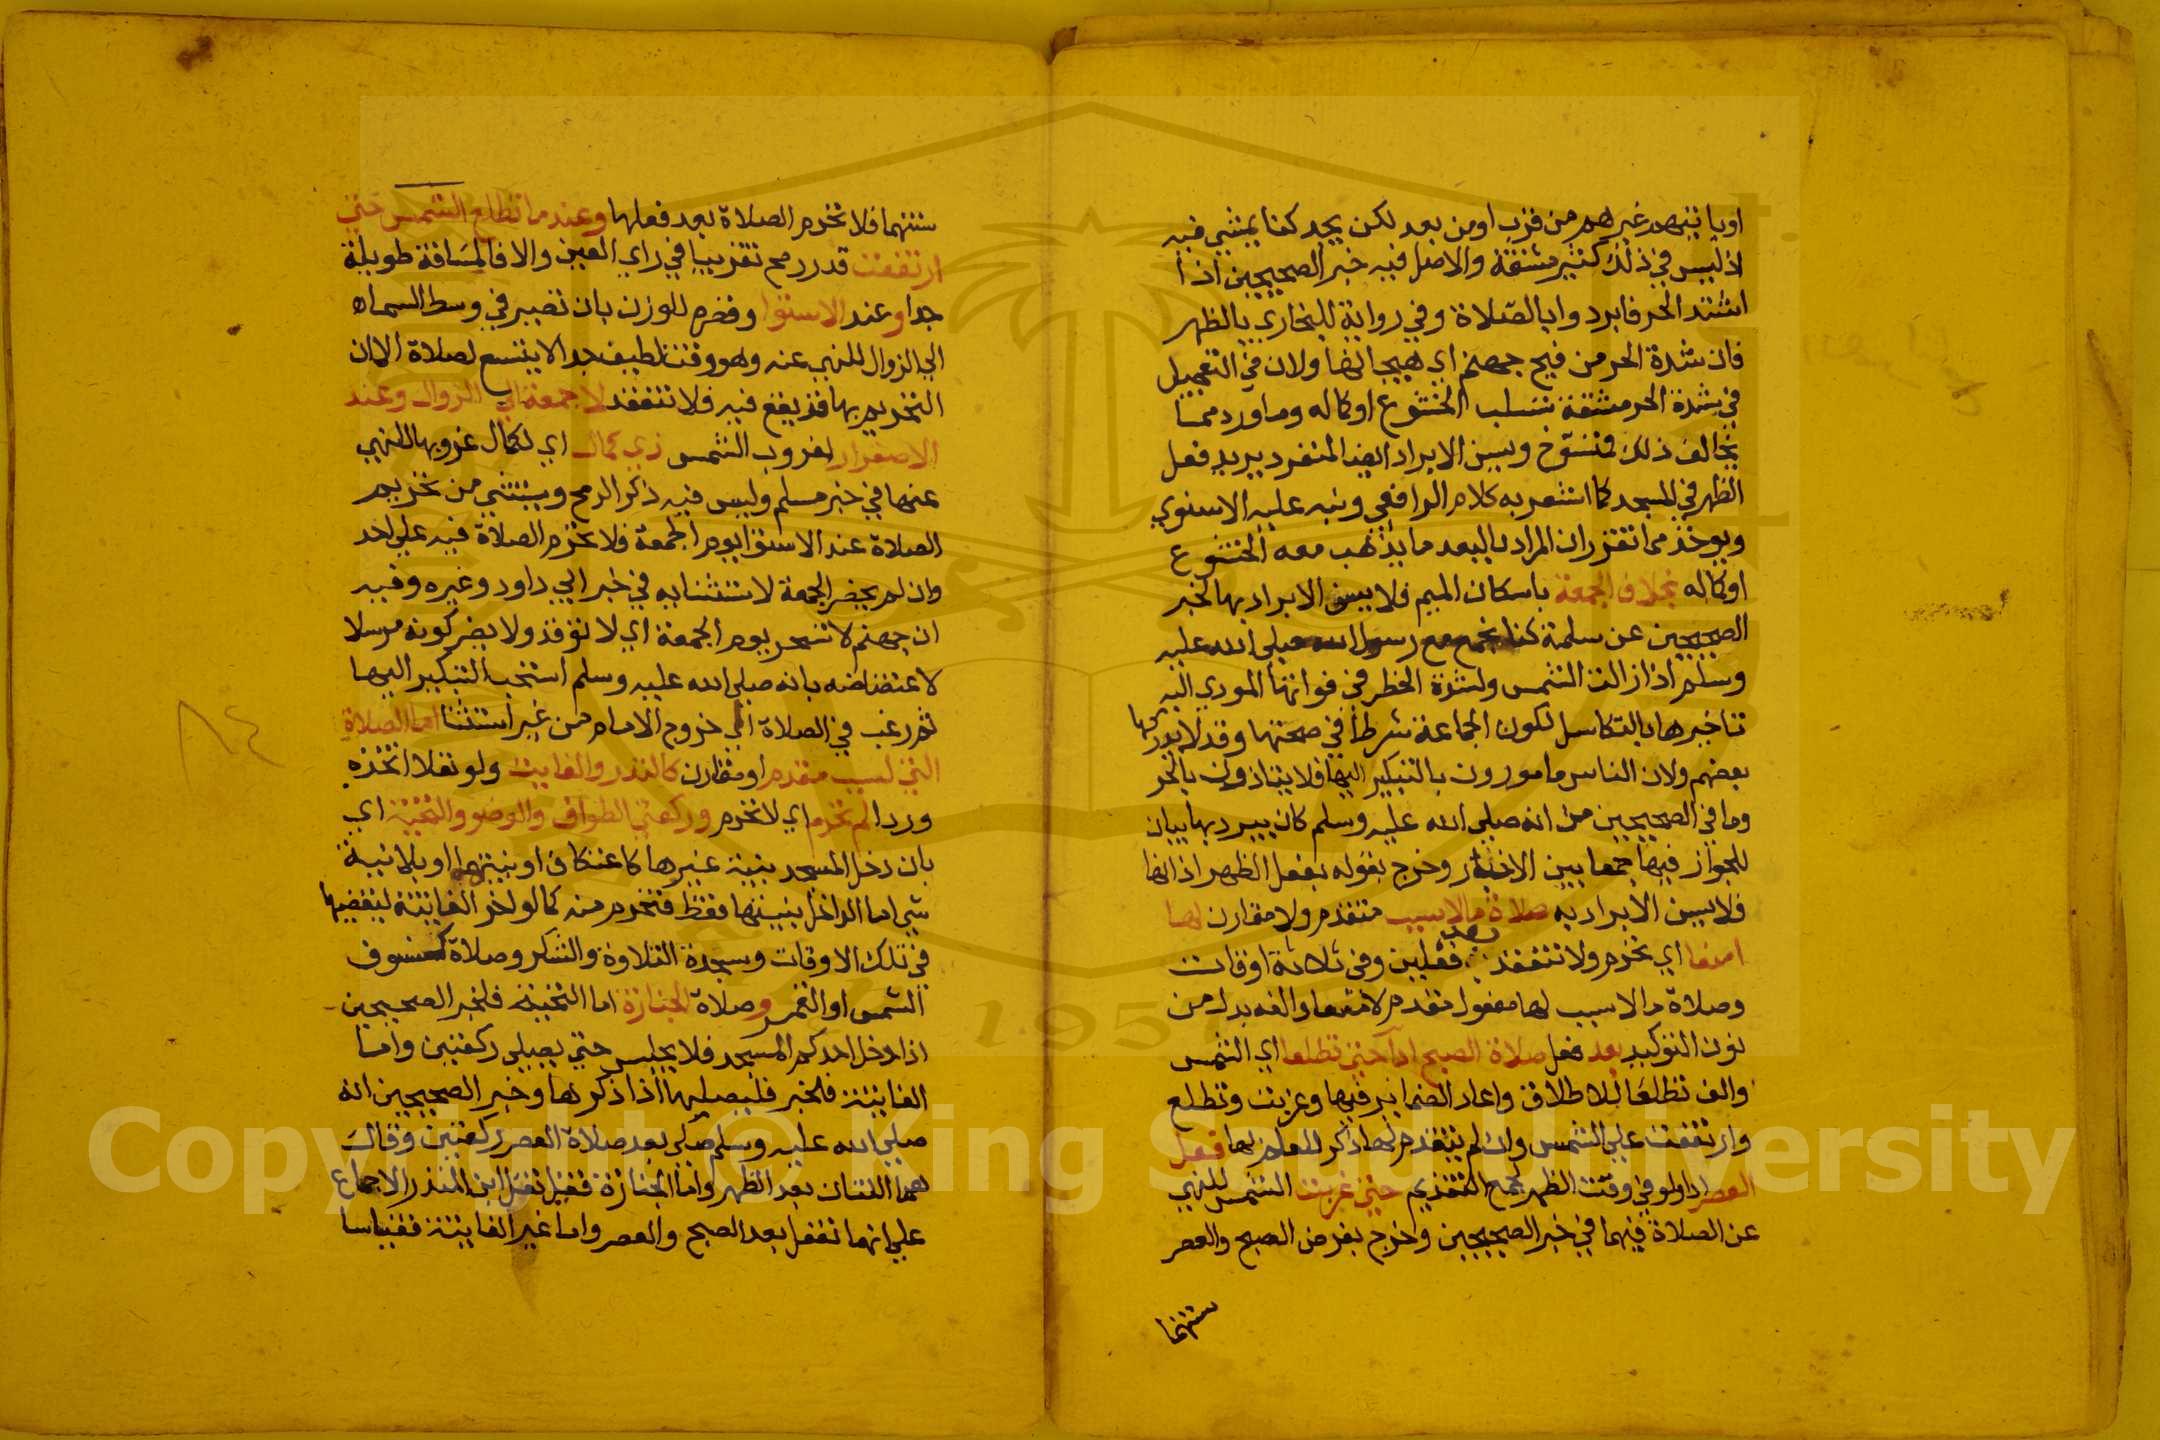 او ياتيهم غيرهم من قرب او من بعد لكن يجد كنا يمشي فيه
اذ ليس في ذلك كثير مشقة والاصل فيه خبر الصحيحين اذا
اشتد الحر فابردوا بالصلاة وفي رواية للبخاري بالظهر
فان شدة الحر من فيح جهنم اي هيجانها ولان في التعجيل
في شدة الحر مشقة تسلب الخشوع او كماله وما ورد مما
يخالف ذلك فمنسوخ ويسن الابراد ايضا لمنفرد يريد فعل
الظهر في المسجد كما اشعر به كلام الرافعي ونبه عليه الاسنوي
ويوخذ مما تقرر ان المراد بالبعد ما يذهب معه الخشوع
او كماله بخلاف الجمعة باسكان الميم فلا يسن الابراد بها لخبر
الصحيحين عن سلمة كنا نجمع مع رسول الله صلى الله عليه
وسلم اذا زالت الشمس ولشدة الخطر في فواتها المودي اليه
تاخيرها بالتكاسل لكون الجماعة شرطا في صحتها وقد لا يدركها
بعضهم ولان الناس مامورون بالتبكير اليها فلا يتاذون بالحر
وما في الصحيحين من انه صلى الله عليه وسلم كان يبرد بها بيان
للجواز فيها جمعا بين الاخبار وخرج بقوله بفعل الظهر اذانها
فلا يسن الابراد به صلاة ما لا سبب متقدم ولا مقارن لها
امنعا اي تحرم ولا تنعقد بعد فعلين وفي ثلاثة اوقات
وصلاة ما لا سبب لها مفعول مقدم لامنعا والفه بدل من
نون التوكيد بعد فعل صلاة الصبح ادا حتى تطلعا اي الشمس
والف تطلعا للاطلاق واعاد الضمائر فيها وغربت وتطلع
وارتفعت على الشمس وان لم يتقدم لها ذكر للعلم بها فعل
العصر ادا ولو في وقت الظهر لجمع التقديم حتى غربت الشمس للنهي
عن الصلاة فيهما في خبر الصحيحين وخرج بفرض الصبح والعصر
سنتهما
سنتهما فلا تحرم الصلاة بعد فعلها وعند ما تطلع الشمس حتى
ارتفعت قدر رمح تقريبا في راي العين والا فالمسافة طويلة
جدا وعند الاستوا وقصره للوزن بان تصير في وسط السماء
الى الزوال للنهي عنه وهو وقت لطيف جدا لا يتسع لصلاة الا ان
التحريم بها قد يقع فيه فلا تنعقد لا جمعة الى الزوال وعند
الاصفرار لغروب الشمس ذي كمال اي لكمال غروبها للنهي
عنها في خبر مسلم وليس فيه ذكر الرمح ويستثنى من تحريم
الصلاة عند الاستوا يوم الجمعة فلا تحرم الصلاة فيه على احد
وان لم يحضر الجمعة لاستثنايه في خبر ابي داود وغيره وفيه
ان جهنم لا تسجر يوم الجمعة اي لا توقد ولا يضر كونه مرسلا
لاعتضاضه بانه صلى الله عليه وسلم استحب التبكير اليها
ثم رغب في الصلاة الى خروج الامام من غير استثنا اما الصلاة
التي لسبب متقدم او مقارن كالنذر والفايت ولو نفلا اتخذه
وردا لم تحرم اي لا تحرم وركعتي الطواف والوضو والتحية اي
بان دخل المسجد بنية غيرها كاعتكاف او بنيتهما او بلا نية
شي اما الداخل بنيتها فقط فتحرم منه كما لو اخر الفايتة ليقضيها
في تلك الاوقات وسجدة التلاوة والشكر وصلاة كسوف
الشمس او القمر وصلاة الجنازة اما التحية فلخبر الصحيحين
اذا دخل احدكم المسجد فلا يجلس حتى يصلي ركعتين واما
الفايتة فلخبر فليصليها اذا ذكرها وخبر الصحيحين انه
صلى الله عليه وسلم صلى بعد صلاة العصر ركعتين وقال
هما اللتان بعد الظهر واما الجنازة فقيل نقل ابن المنذر الاجماع
على انها تفعل بعد الصبح والعصر واما غير الفايتة فقياسا
٨٤
Copyright © King Saud University
1957